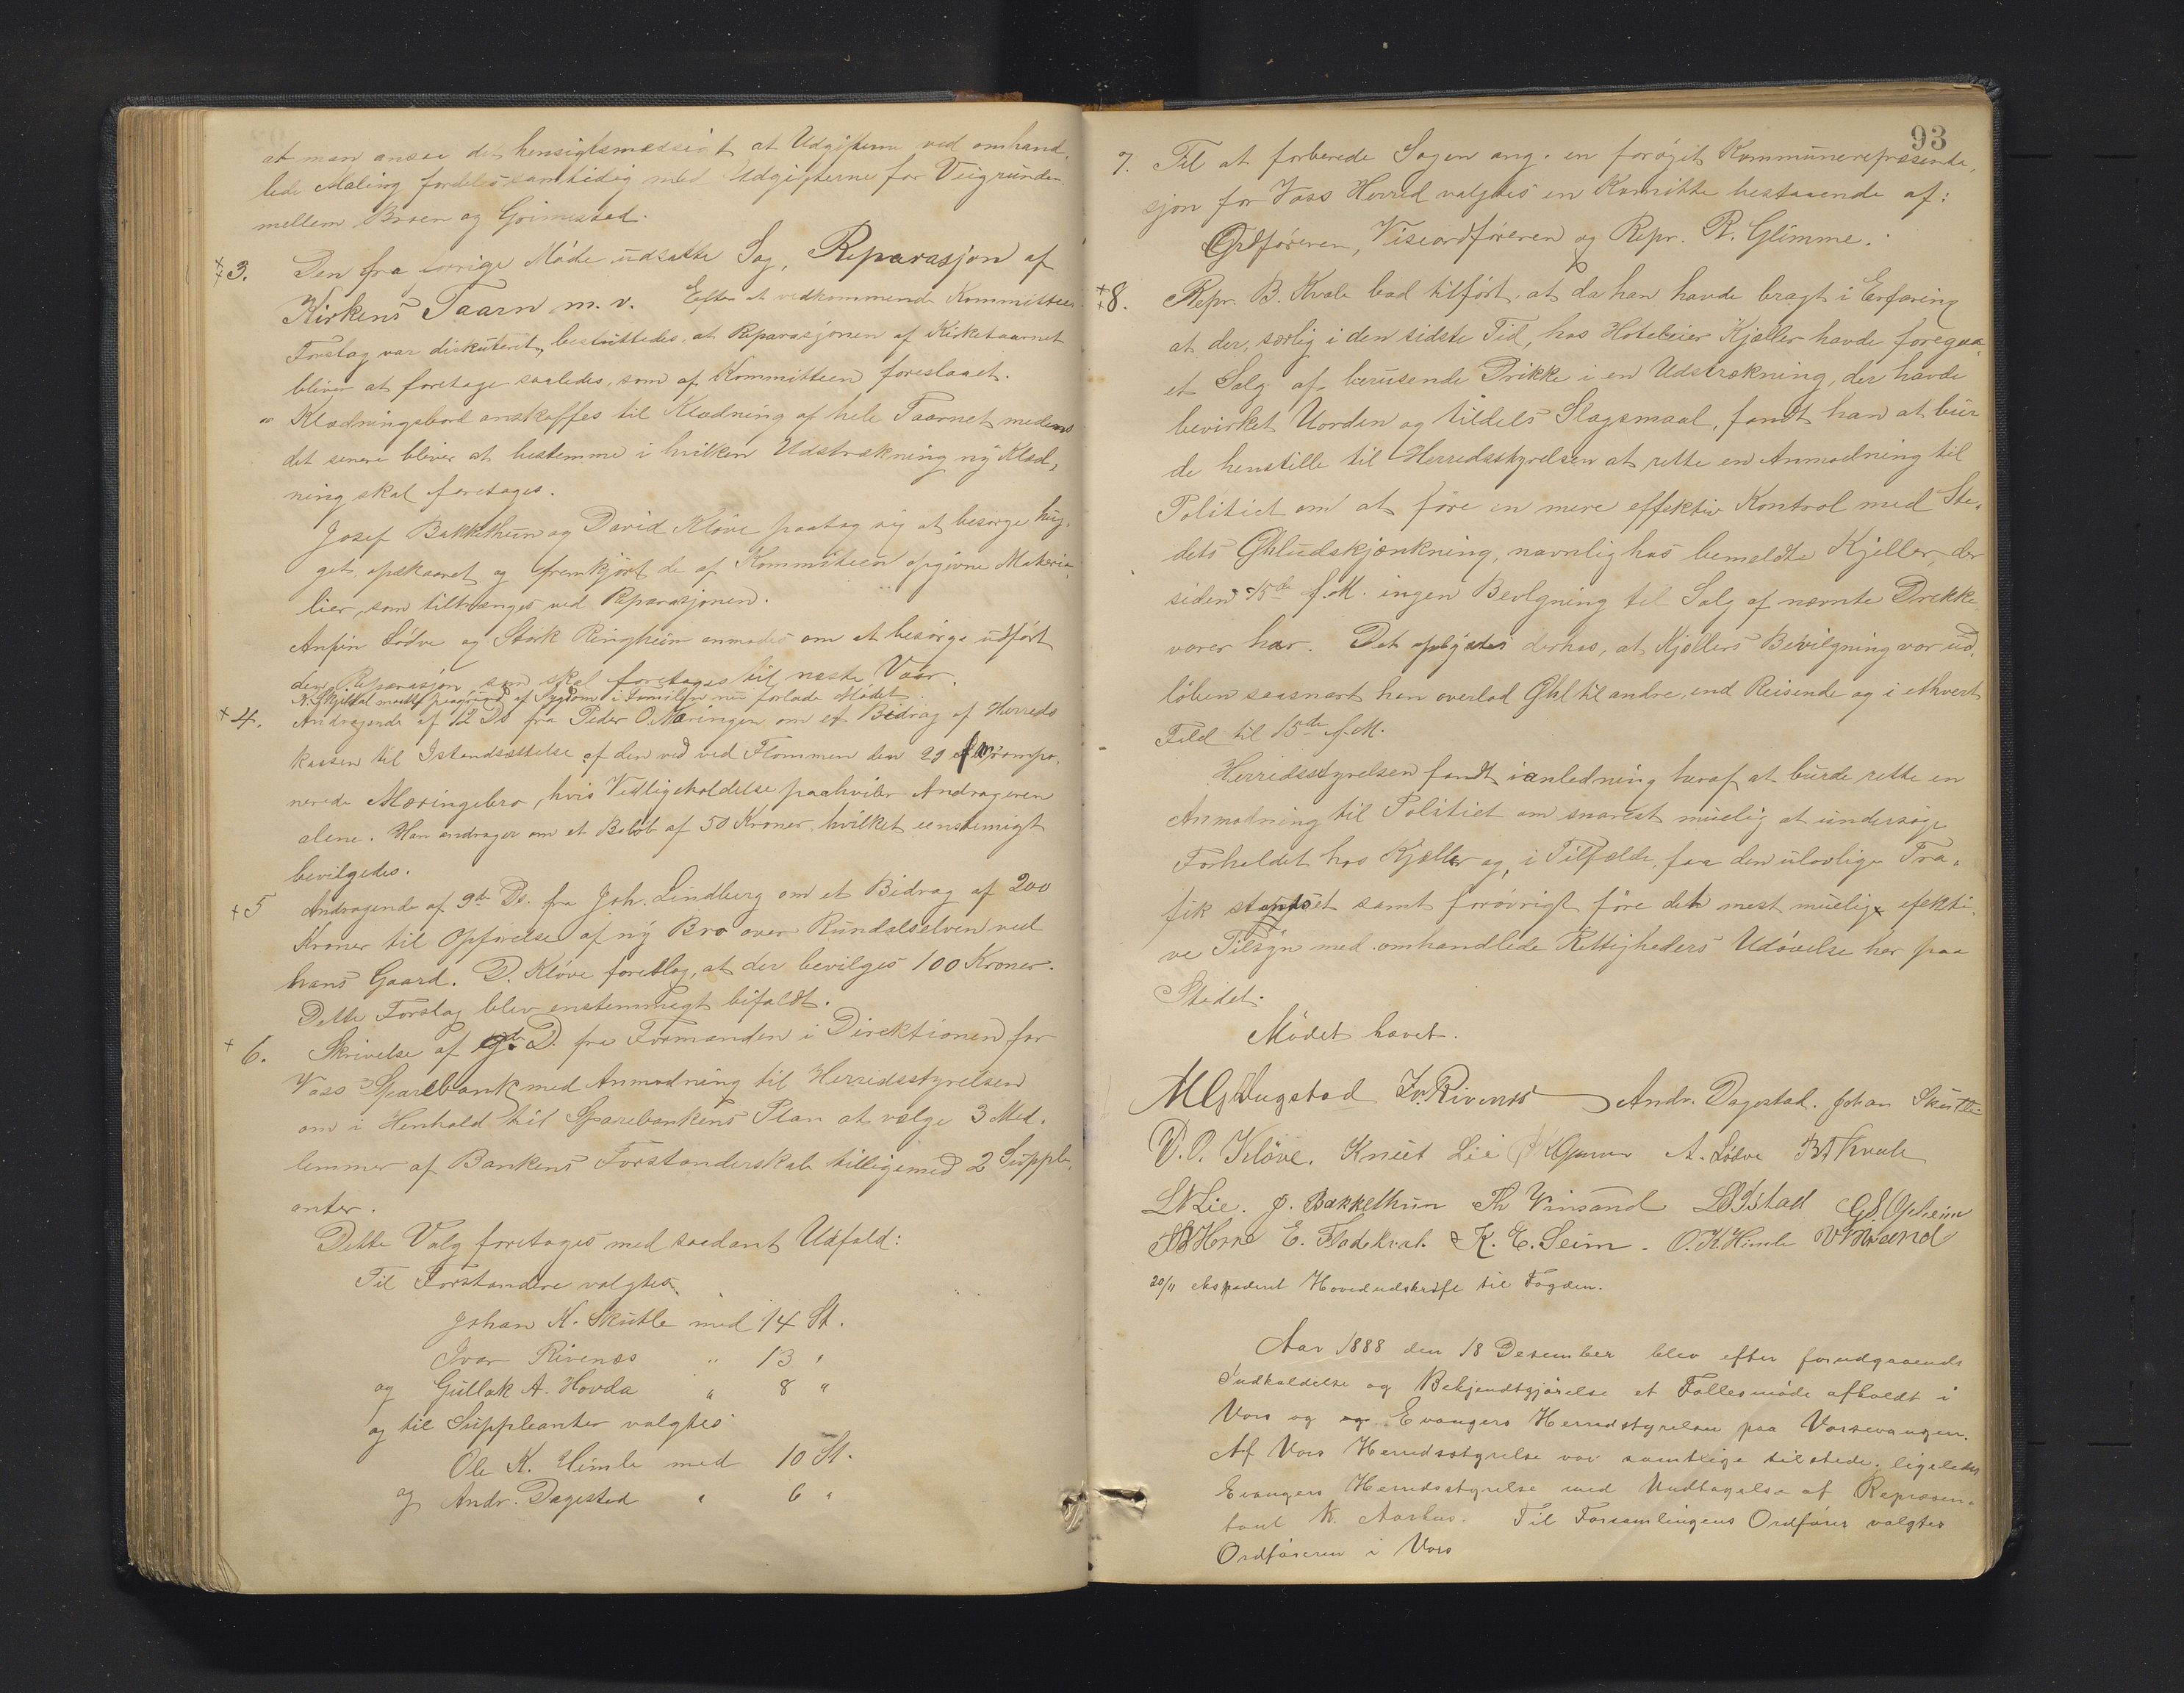 at man ansaa det hensigtsmæssigt at Udgifterne ved omhand,
lede Maling fordeles samtidig med Udgifterne for Veigrunden
mellem Broen og Grimestad.
3. Den fra forrige Møde udsatte Sag, Reparasjon af
Kirkens Taarn m. v. Efter at vedkommende Kommittees
Forslag var diskuteret, besluttedes, at Reparasjonen af Kirketaarnet
bliver at foretage saaledes, som af Kommitteen foreslaaet.
Klædningsbord anskaffes til Klædning af hele Taarnet medens
det senere bliver at bestemme i hvilken Udstrækning ny Klæd,
ning skal foretages.
Josef Bakkethun og David Kløve paatog sig at besørge hug,
get, opskaaret og fremkjørt de af Kommitteen opgivne Materia,
lier, som tiltrænges ved Reparasjonen.
Anfin Lødve og Størk Ringheim anmodes om at besørge udført
den Reparasjon som skal foretages til næste Vaar.
N. Skjeldal maatte paagrund af Sygdom i Familjen nu forlade Mødet.
4. Andragende af 12 Ds fra Peder O. Mæringen om et Bidrag af Herreds
kassen til Istandsættelse af den ved ved Flommen den 29 f. M. rampo,
nerede Mæringebro, hvis Vedligeholdelse paahviler Andrageren
alene. Han andrager om et Beløb af 50 Kroner, hvilket eenstemigt
bevilgedes.
5 Andragende af 9de Ds. fra Joh. Lindberg om et Bidrag af 200
Kroner til Opførelse af ny Bro over Rundalselven ved
hans Gaard. D. Kløve foreslog, at der bevilges 100 Kroner.
Dette Forslag blev enstemmigt bifaldt.
6. Skrivelse af D. fra Formanden i Direktionen for
Voss Sparebank med Anmodning til Herredsstyrelsen
om i Henhold til Sparebankens Plan at vælge 3 Med,
lemmer af Bankens Forstanderskab tilligemed 2 Supple,
anter.
Dette Valg foretages med saadant Udfald:
Til Forstandere valgtes
Johan K. Skutle med 14 St.
Ivar Rivenæs " 13 "
og Gullak A. Hovda " 8 "
og til Suppleanter valgtes
Ole K. Himle med 10 St.
og Andr. Dagestad " 6 "
93
7. Til at forberede Sagen ang. en forøget Kommunerepræsenta,
sjon for Voss Herred valgtes en Komitte bestaaende af:
Ordføreren, Viseordføreren og Repr. R. Glimme.
8. Repr. B. Kvale bad tilført, at da han havde bragt i Erfaring
at der, særlig i den sidste Tid, hos Hoteleier Kjeller havde foregaa,
et Salg af berusende Drikke i en Udstrækning, der havde
bevirket Uorden og tildels Slagsmaal, fandt han at bur
de henstille til Herredsstyrelsen at rette en Anmodning til
Politiet om at føre en mere effektiv Kontrol med Ste,
dets Øludskjænkning, navnlig hos bemeldte Kjeller, der
siden 15de f. M. ingen Bevlgning til Salg af nævnte Drikke,
varer har. Det oplystes derhos, at Kjellers Bevilgning var ud,
løben saasnart han overlod Øhl til andre, end Reisende og i ethvert
Fald til 15de f. M.
Herredsstyrelsen fandt ianledning heraf at burde rette en
Anmodning til Politiet om snarest muelig at undersøge
Forholdet hos Kjeller og, i Tilfælde, faa den ulovlige Tra,
fik stanset samt forøvrigt føre det mest muelig efekti,
ve Tilsyn med omhandlede Rettigheders Udøvelse her paa
Stedet.
Mødet hævet.
Iv. Rivenæs Andr. Dagestad. Johan Skutle
D. O. Kløve. Knut Lie A. Lødve B Kvale
L N Lie. J. Bakkethun Th Vinsand G S Opheim
E. Flatekval K. E. Seim. O. K. Himle
20/11 ekspederet Hovedudskrift til Fogden.
Aar 1888 den 18 Desember blev efter forudgaaende
Indkaldelse og Bekjendtgjørelse et Fællesmøde afholdt i
Vors og og Evangers Herredstyrelse paa Vorsevangen.
Af Vors Herredsstyrelse var samtlige tilstede, ligeledes
Evangers Herredsstyrelse med Undtagelse af Repræsen,
tant K. Aarhus. Til Forsamlingens Ordfører valgtes
Ordføreren i Vors